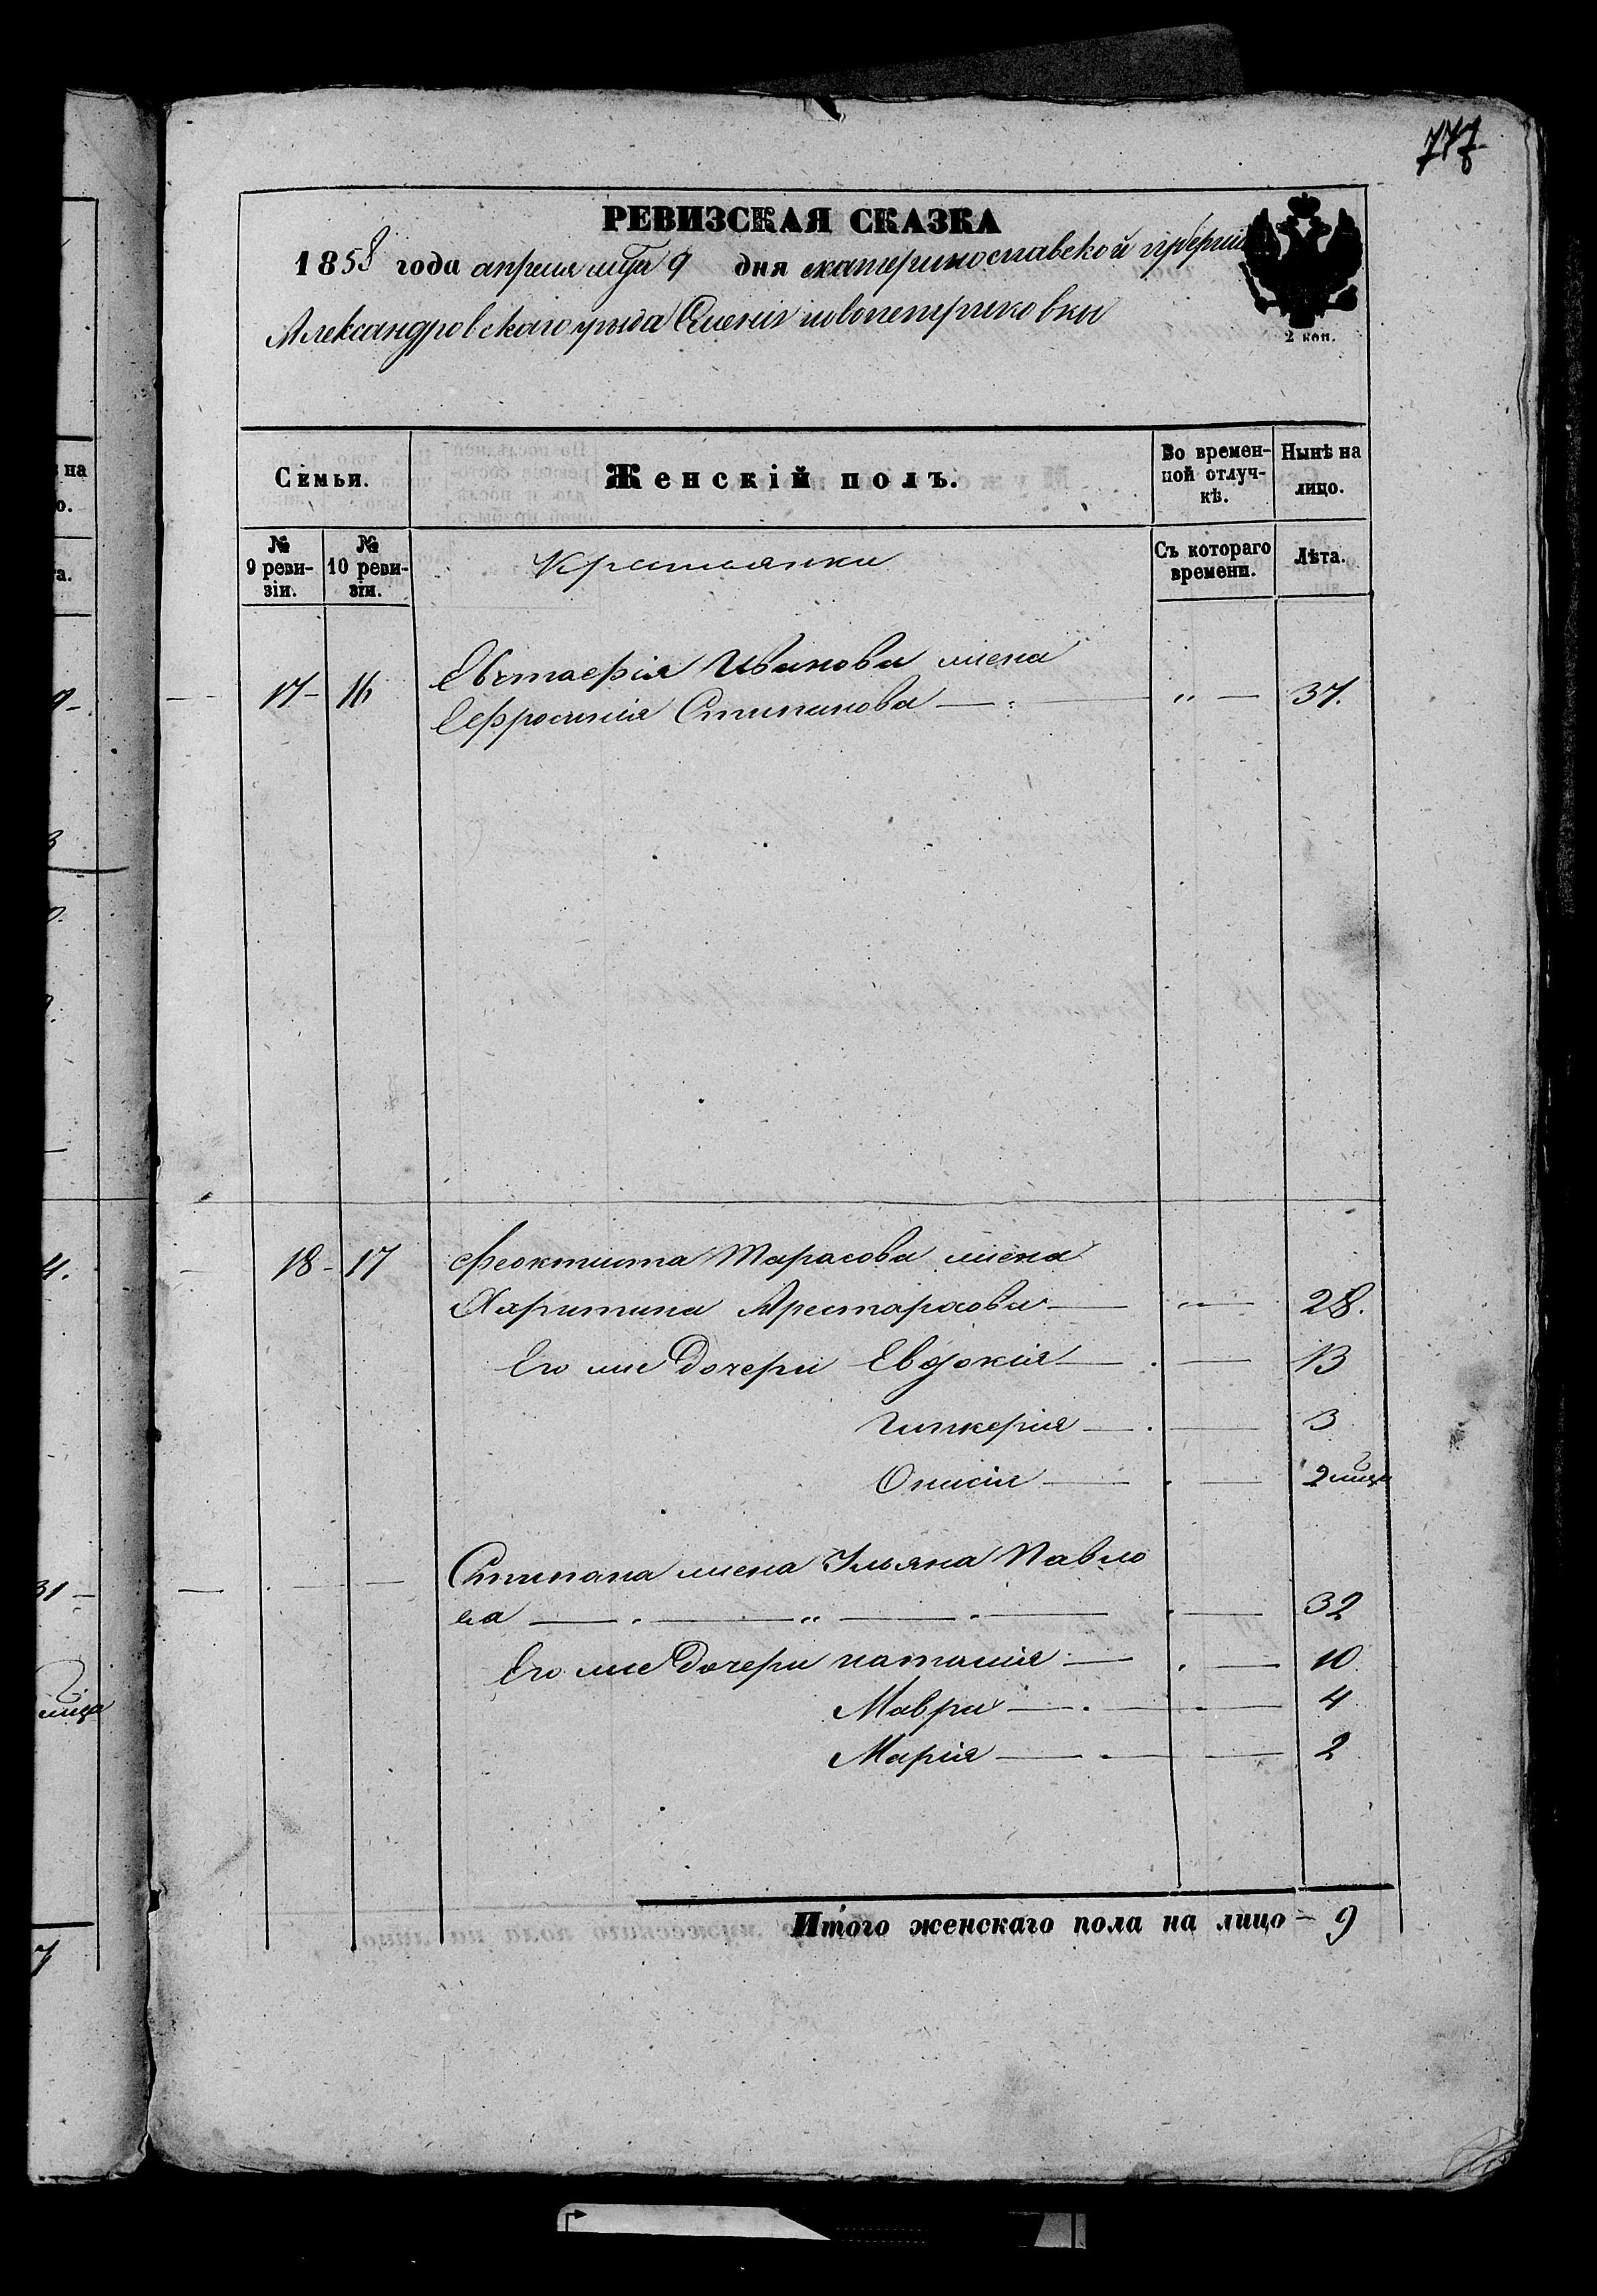 777
РЕВИЗСКАЯ СКАЗКА
1858 года апреля мця 9 дня екатеринославской губерніи
Александровскаго уезда Имения новопетриковки
2 коп.
Семьи.
Женскій полъ.
Во времен-
ной отлуч-
кѣ.
Нынѣ на
лицо.
№
9 реви-
зіи.
№
10 реви-
зіи.
Крестьянки
Съ котораго
времени.
Лѣта.
Евстаефія Иванова жена
17 - 16 Ефросинія Степанова — " — 37.
18 - 17 Феоктиста Тарасова жена
Харитина Арестарахова — " — 28.
Его же дочери Евдокія — 13
Гликерія — 3
Онисія — 2 мця
Степана жена Ульяна Павло
ва — " — 32
Его же дочери наталия — 10
Мавра — 4
Марія — 2
Итого женскаго пола на лицо - 9